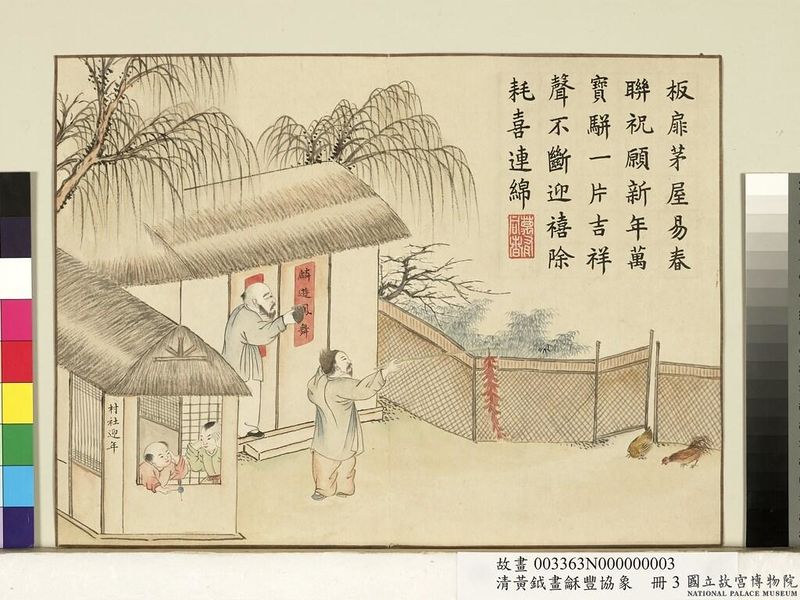 板扉茅屋易春
聯祝願新年萬
寶駢一片吉祥
聲不斷迎禧除
耗喜連綿
麟遊鳳舞
村社迎年
故畫 003363N000000003
清黃鉞畫龢豐協象　冊 3
國立故宮博物院
NATIONAL PALACE MUSEUM